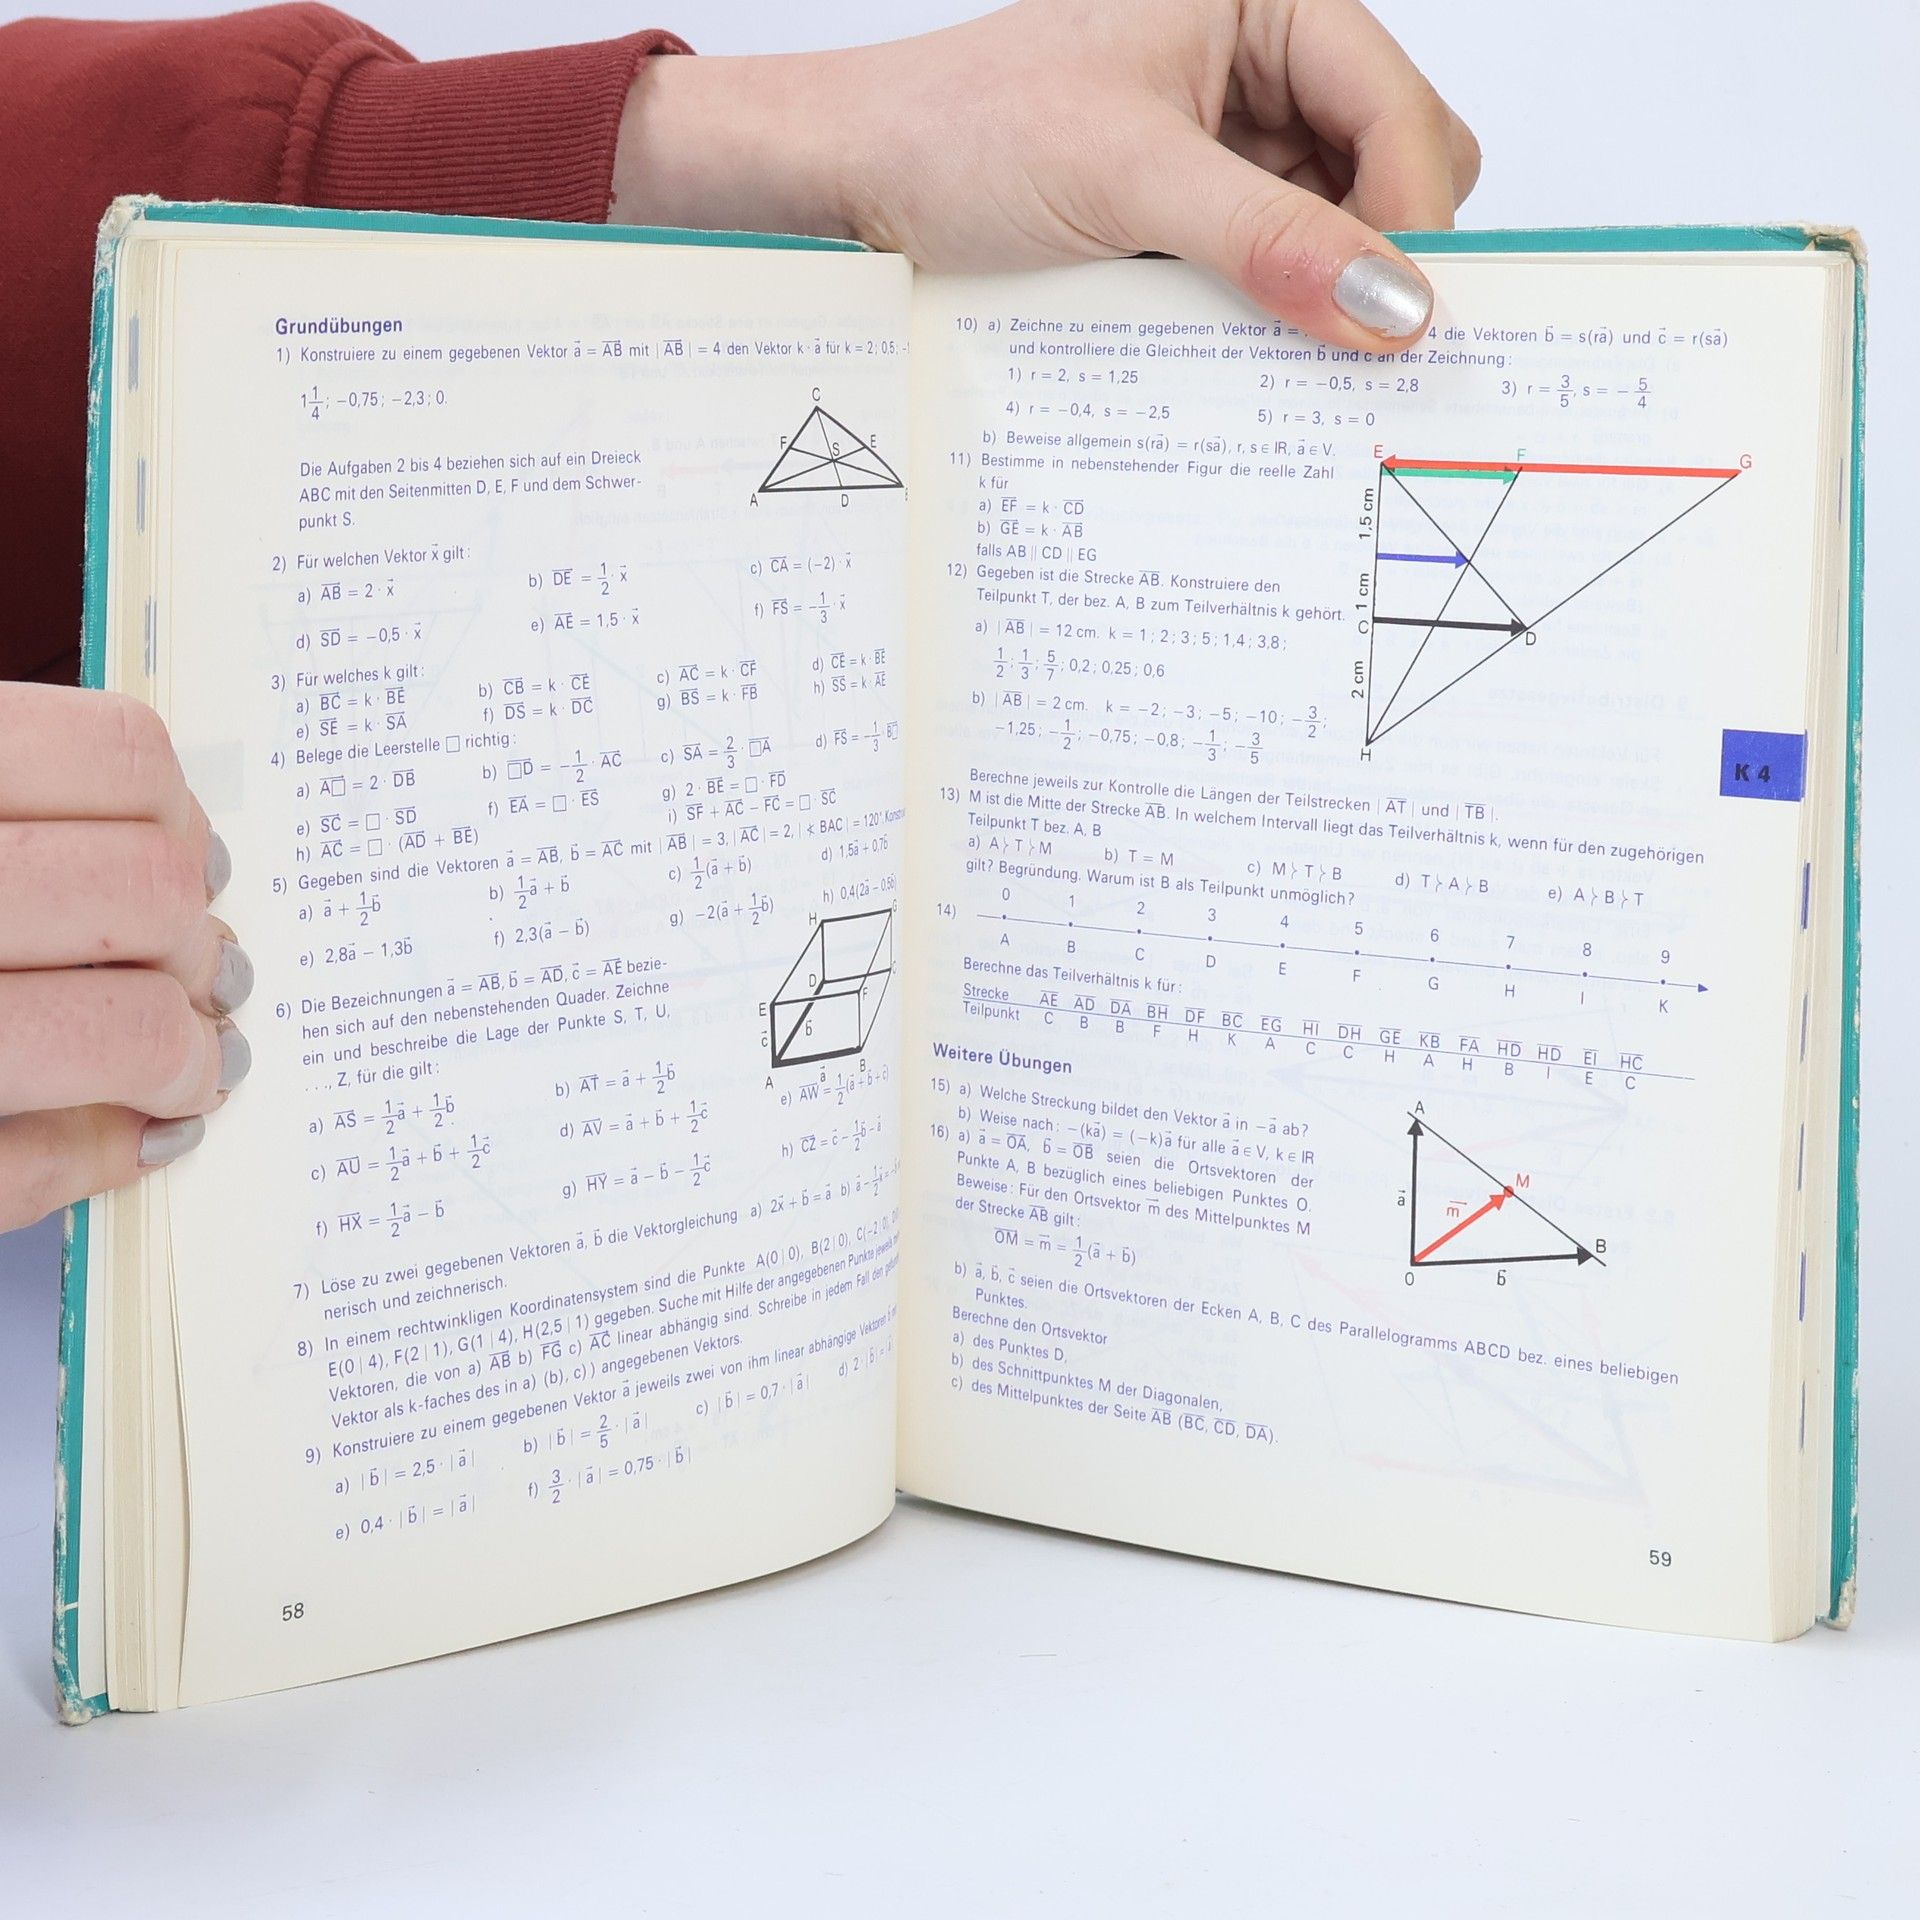 Grundübungen
1) Konstruiere zu einem gegebenen Vektor a⃗ = A͞B͞ mit | A͞B͞ | = 4 den Vektor k · a⃗ für k = 2; 0,5;
1 1/4; −0,75; −2,3; 0.
Die Aufgaben 2 bis 4 beziehen sich auf ein Dreieck
ABC mit den Seitenmitten D, E, F und dem Schwer-
punkt S.
C
F E
S
A D
2) Für welchen Vektor x⃗ gilt:
a) AB = 2 · x⃗ b) DE = 1/2 · x⃗ c) CA = (−2) · x⃗
d) SD = −0,5 · x⃗ e) AE = 1,5 · x⃗ f) FS = −1/3 · x⃗
3) Für welches k gilt:
a) BC = k · BE b) CB = k · CE c) AC = k · CF d) CE = k · BE
e) SE = k · SA f) DS = k · DC g) BS = k · FB h) SS = k · AE
4) Belege die Leerstelle □ richtig:
a) A□ = 2 · DB b) □D = −1/2 · AC c) SA = 2/3 · □A d) FS = −1/3 · B□
e) SC = □ · SD f) EA = □ · ES g) 2 · BE = □ · FD
h) AC = □ · (AD + BE) i) SF + AC − FC = □ · SC
5) Gegeben sind die Vektoren a⃗ = AB, b⃗ = AC mit | AB | = 3, | AC | = 2, | ∢ BAC | = 120°.
a) a⃗ + 1/2 b⃗ b) 1/2 a⃗ + b⃗ c) 1/2 (a⃗ + b⃗) d) 1,5a⃗ + 0,7b⃗
e) 2,8a⃗ − 1,3b⃗ f) 2,3(a⃗ − b⃗) g) −2(a⃗ + 1/2 b⃗) h) 0,4(2a⃗ − 0,5b⃗)
6) Die Bezeichnungen a⃗ = AB, b⃗ = AD, c⃗ = AE bezie-
hen sich auf den nebenstehenden Quader. Zeichne
ein und beschreibe die Lage der Punkte S, T, U,
. . ., Z, für die gilt:
H G
D C
E F
c⃗ b⃗
A a⃗ B
a) AS = 1/2 a⃗ + 1/2 b⃗ b) AT = a⃗ + 1/2 b⃗
c) AU = 1/2 a⃗ + b⃗ + 1/2 c⃗ d) AV = a⃗ + b⃗ + 1/2 c⃗ e) AW = 1/2 (a⃗ + b⃗ + c⃗)
f) HX = 1/2 a⃗ − b⃗ g) HY = a⃗ − b⃗ − 1/2 c⃗ h) CZ = c⃗ − 1/2 b⃗ − a⃗
7) Löse zu zwei gegebenen Vektoren a⃗, b⃗ die Vektorgleichung a) 2x⃗ + b⃗ = a⃗ b)
nerisch und zeichnerisch.
8) In einem rechtwinkligen Koordinatensystem sind die Punkte A(0 | 0), B(2 | 0), C(−2 | 0),
E(0 | 4), F(2 | 1), G(1 | 4), H(2,5 | 1) gegeben. Suche mit Hilfe der angegebenen Punkte jeweils
Vektoren, die von a) AB b) FG c) AC linear abhängig sind. Schreibe in jedem Fall den
Vektor als k-faches des in a) (b), c)) angegebenen Vektors.
9) Konstruiere zu einem gegebenen Vektor a⃗ jeweils zwei von ihm linear abhängige Vektoren b⃗
a) | b⃗ | = 2,5 · | a⃗ | b) | b⃗ | = 2/5 · | a⃗ | c) | b⃗ | = 0,7 · | a⃗ | d) 2 · | b⃗ | =
e) 0,4 · | b⃗ | = | a⃗ | f) 3/2 · | a⃗ | = 0,75 · | b⃗ |
58
10) a) Zeichne zu einem gegebenen Vektor a⃗ = 4 die Vektoren b⃗ = s(ra⃗) und c⃗ = r(sa⃗)
und kontrolliere die Gleichheit der Vektoren b⃗ und c⃗ an der Zeichnung:
1) r = 2, s = 1,25 2) r = −0,5, s = 2,8 3) r = 3/5, s = − 5/4
4) r = −0,4, s = −2,5 5) r = 3, s = 0
b) Beweise allgemein s(ra⃗) = r(sa⃗), r, s ∈ IR, a⃗ ∈ V.
11) Bestimme in nebenstehender Figur die reelle Zahl
k für
a) EF = k · CD
b) GE = k · AB
falls AB || CD || EG
E F G
1,5 cm
1 cm
C D
2 cm
H
12) Gegeben ist die Strecke AB. Konstruiere den
Teilpunkt T, der bez. A, B zum Teilverhältnis k gehört.
a) | AB | = 12 cm. k = 1; 2; 3; 5; 1,4; 3,8;
1/2; 1/3; 5/7; 0,2; 0,25; 0,6
b) | AB | = 2 cm. k = −2; −3; −5; −10; −3/2;
−1,25; −1/2; −0,75; −0,8; −1/3; −3/5
Berechne jeweils zur Kontrolle die Längen der Teilstrecken | AT | und | TB |.
13) M ist die Mitte der Strecke AB. In welchem Intervall liegt das Teilverhältnis k, wenn für den zugehörigen
Teilpunkt T bez. A, B
a) A ⟩ T ⟩ M b) T = M c) M ⟩ T ⟩ B d) T ⟩ A ⟩ B e) A ⟩ B ⟩ T
gilt? Begründung. Warum ist B als Teilpunkt unmöglich?
14) 0 1 2 3 4 5 6 7 8 9
A B C D E F G H I K
Berechne das Teilverhältnis k für:
Strecke AE AD DA BH DF BC EG HI DH GE KB FA HD HD EI HC
Teilpunkt C B B F H K A C C H A H B I E C
Weitere Übungen
15) a) Welche Streckung bildet den Vektor a⃗ in −a⃗ ab?
b) Weise nach: −(ka⃗) = (−k)a⃗ für alle a⃗ ∈ V, k ∈ IR
16) a) a⃗ = OA, b⃗ = OB seien die Ortsvektoren der
Punkte A, B bezüglich eines beliebigen Punktes O.
Beweise: Für den Ortsvektor m⃗ des Mittelpunktes M
der Strecke AB gilt:
OM = m⃗ = 1/2 (a⃗ + b⃗)
A
M
a⃗ m⃗
B
0 b⃗
b) a⃗, b⃗, c⃗ seien die Ortsvektoren der Ecken A, B, C des Parallelogramms ABCD bez. eines beliebigen
Punktes.
Berechne den Ortsvektor
a) des Punktes D,
b) des Schnittpunktes M der Diagonalen,
c) des Mittelpunktes der Seite AB (BC, CD, DA).
K 4
59